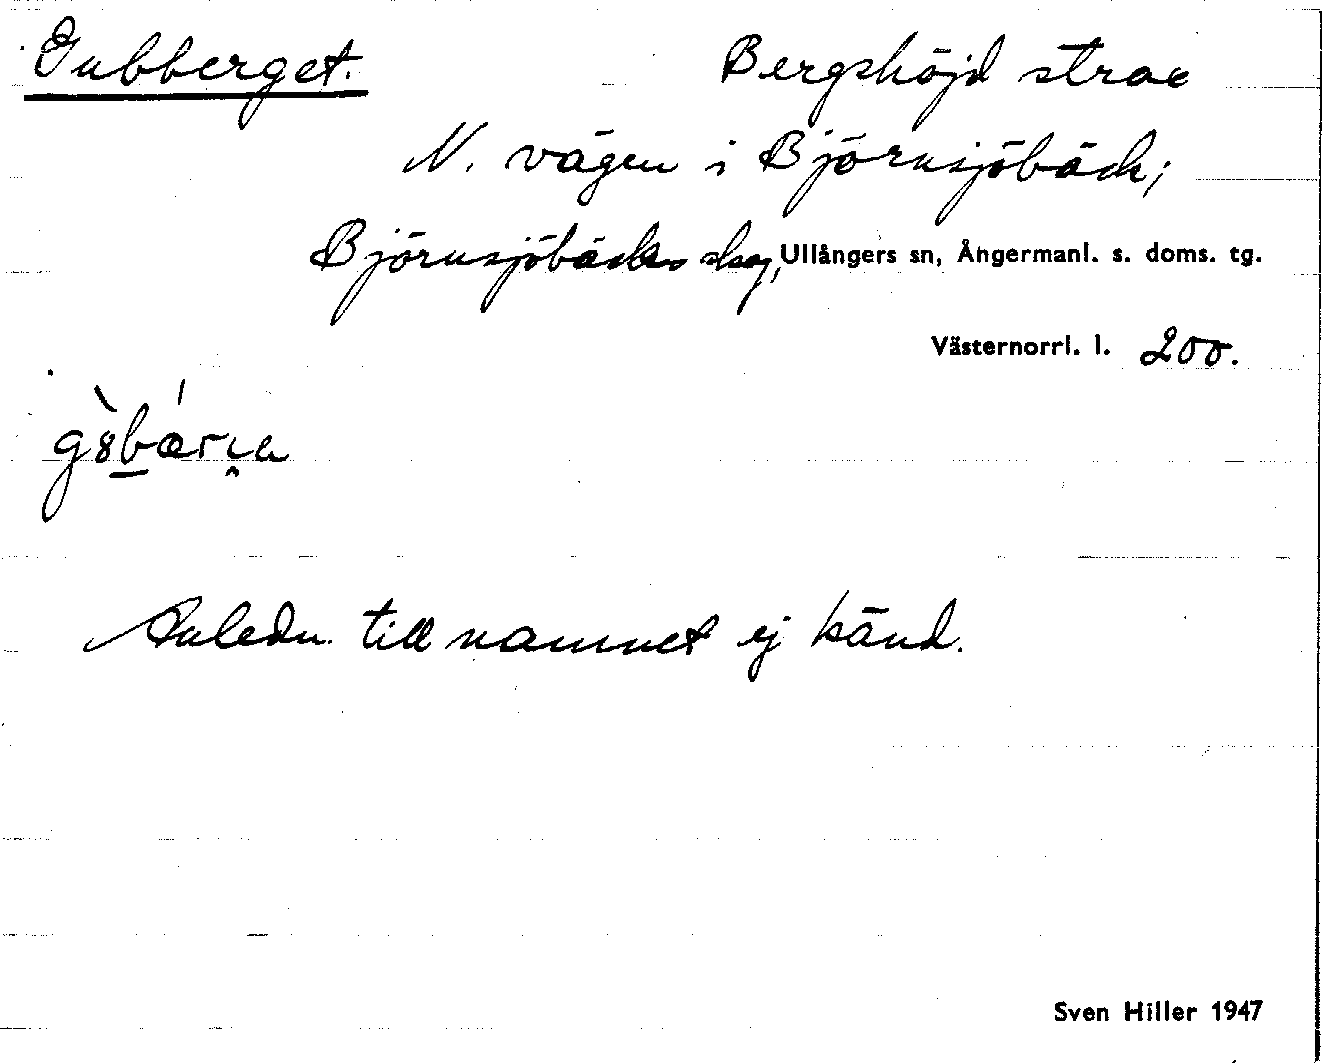 Gubberget.
Bergshöjd strax
N. vägen i Björnsjöbäck;
Björnsjöbäcks skog, Ullångers sn, Ångermanl. s. doms. tg.
Västernorrl. l. 200.
Anledn. till namnet ej känd.
Sven Hiller 1947